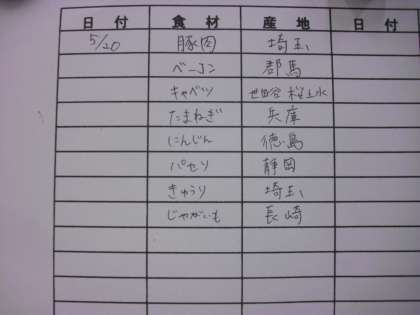 日付 食材 産地 日付
5/20 豚肉 埼玉
ベーコン 郡馬
キャベツ 世田谷 桜上水
たまねぎ 兵庫
にんじん 徳島
パセリ 静岡
きゅうり 埼玉
じゃがいも 長崎